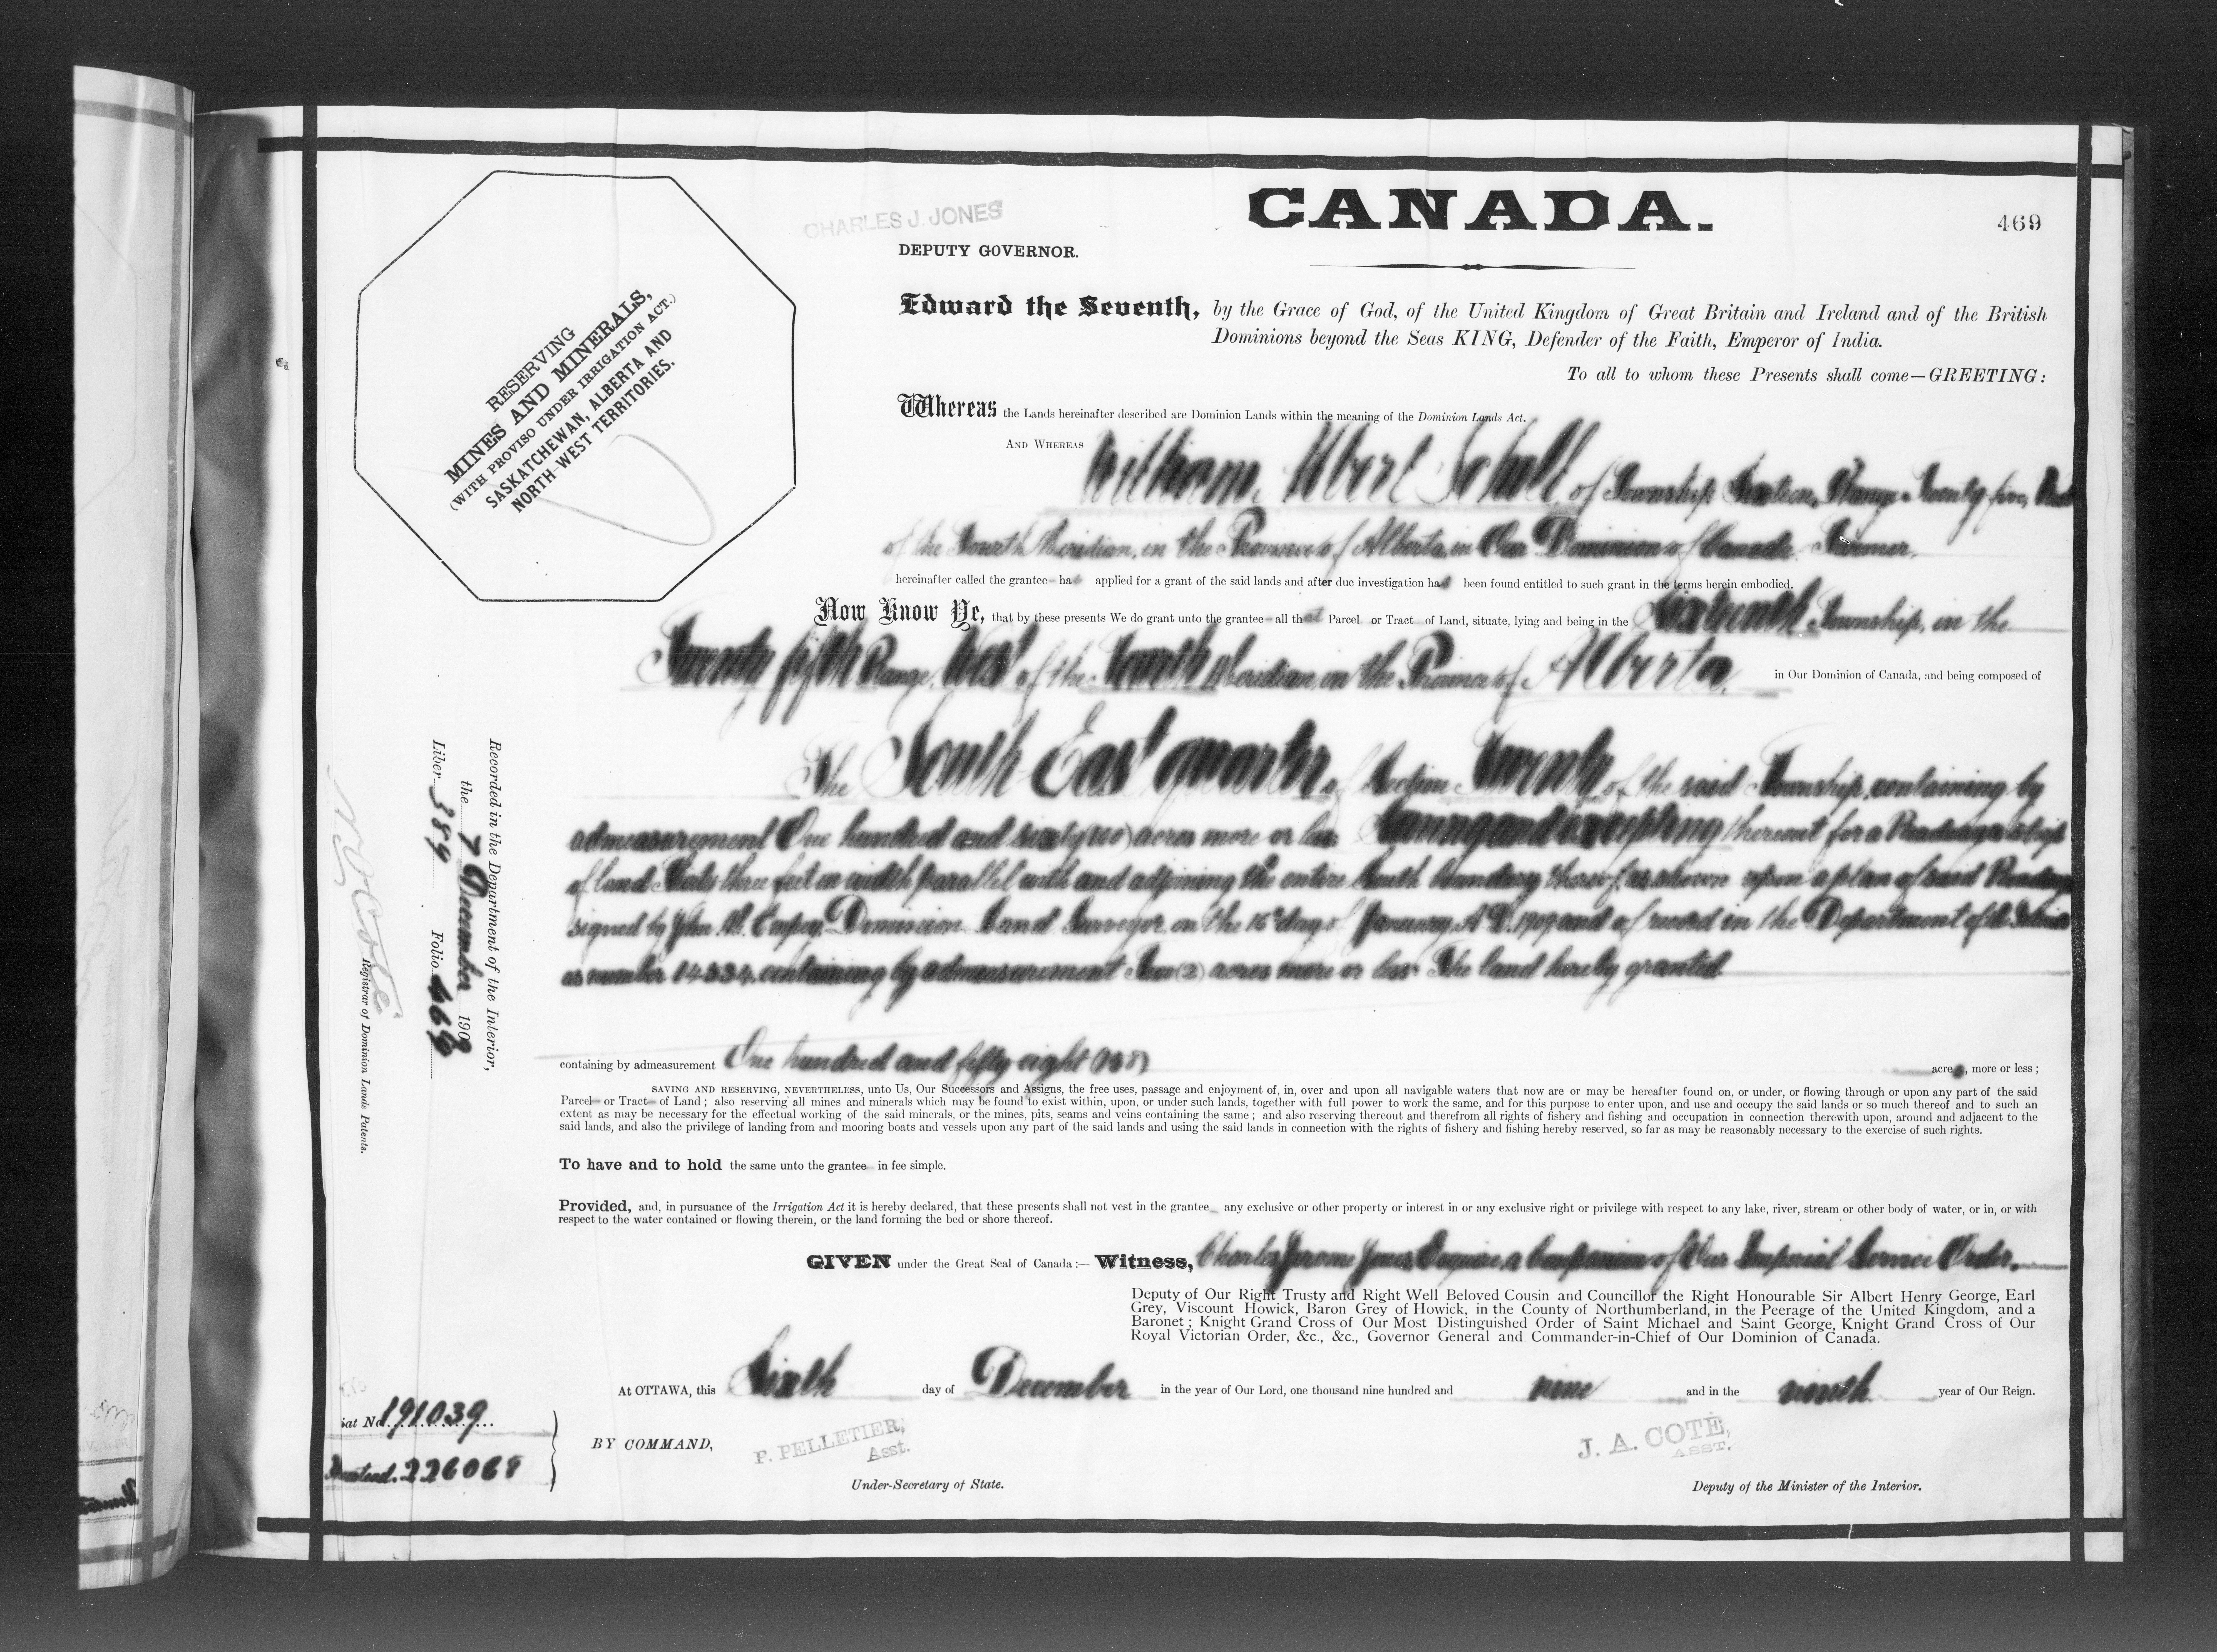 CANADA.
469
CHARLES J. JONES
DEPUTY GOVERNOR.
RESERVING
MINES AND MINERALS,
(WITH PROVISO UNDER IRRIGATION ACT.)
SASKATCHEWAN, ALBERTA AND
NORTH-WEST TERRITORIES.
Edward the Seventh, by the Grace of God, of the United Kingdom of Great Britain and Ireland and of the British
Dominions beyond the Seas KING, Defender of the Faith, Emperor of India.
To all to whom these Presents shall come—GREETING:
Whereas the Lands hereinafter described are Dominion Lands within the meaning of the Dominion Lands Act.
AND WHEREAS William Albert of Township Sixteen, Range Twenty-five, West
of the Fourth Meridian, in the Province of Alberta, in Our Dominion of Canada, Farmer,
hereinafter called the grantee has applied for a grant of the said lands and after due investigation has been found entitled to such grant in the terms herein embodied.
Now Know Ye, that by these presents We do grant unto the grantee all that Parcel or Tract of Land, situate, lying and being in the Sixteenth Township, in the
Twenty fifth Range, West of the Fourth Meridian, in the Province of Alberta, in Our Dominion of Canada, and being composed of
The South East quarter of Section Twenty of the said Township, containing by
admeasurement One hundred and sixty (160) acres more or less. Saving and excepting thereout for a Roadway a strip
of land Sixty three feet in width parallel with and adjoining the entire South boundary thereof, as shown upon a plan of said Roadway
signed by John M. Empey, Dominion Land Surveyor, on the 16th day of January, A.D. 1909 and of record in the Department of the Interior
as number 14334, containing by admeasurement Two (2) acres more or less. The land hereby granted
containing by admeasurement One hundred and fifty eight (158) acres, more or less;
SAVING AND RESERVING, NEVERTHELESS, unto Us, Our Successors and Assigns, the free uses, passage and enjoyment of, in, over and upon all navigable waters that now are or may be hereafter found on, or under, or flowing through or upon any part of the said
Parcel or Tract of Land; also reserving all mines and minerals which may be found to exist within, upon, or under such lands, together with full power to work the same, and for this purpose to enter upon, and use and occupy the said lands or so much thereof and to such an
extent as may be necessary for the effectual working of the said minerals, or the mines, pits, seams and veins containing the same; and also reserving thereout and therefrom all rights of fishery and fishing and occupation in connection therewith upon, around and adjacent to the
said lands, and also the privilege of landing from and mooring boats and vessels upon any part of the said lands and using the said lands in connection with the rights of fishery and fishing hereby reserved, so far as may be reasonably necessary to the exercise of such rights.
To have and to hold the same unto the grantee in fee simple.
Provided, and, in pursuance of the Irrigation Act it is hereby declared, that these presents shall not vest in the grantee any exclusive or other property or interest in or any exclusive right or privilege with respect to any lake, river, stream or other body of water, or in, or with
respect to the water contained or flowing therein, or the land forming the bed or shore thereof.
GIVEN under the Great Seal of Canada:— Witness, Charles Jerome Jones, Esquire, a Companion of Our Imperial Service Order,
Deputy of Our Right Trusty and Right Well Beloved Cousin and Councillor the Right Honourable Sir Albert Henry George, Earl
Grey, Viscount Howick, Baron Grey of Howick, in the County of Northumberland, in the Peerage of the United Kingdom, and a
Baronet; Knight Grand Cross of Our Most Distinguished Order of Saint Michael and Saint George, Knight Grand Cross of Our
Royal Victorian Order, &c., &c., Governor General and Commander-in-Chief of Our Dominion of Canada.
At OTTAWA, this Sixth day of December in the year of Our Lord, one thousand nine hundred and nine and in the ninth year of Our Reign.
BY COMMAND,
F. PELLETIER,
Asst.
Under-Secretary of State.
J. A. COTÉ,
ASST.
Deputy of the Minister of the Interior.
Recorded in the Department of the Interior,
the 7 December 1909
Liber 389 Folio 469
Registrar of Dominion Lands Patents.
iat No 191039
226068